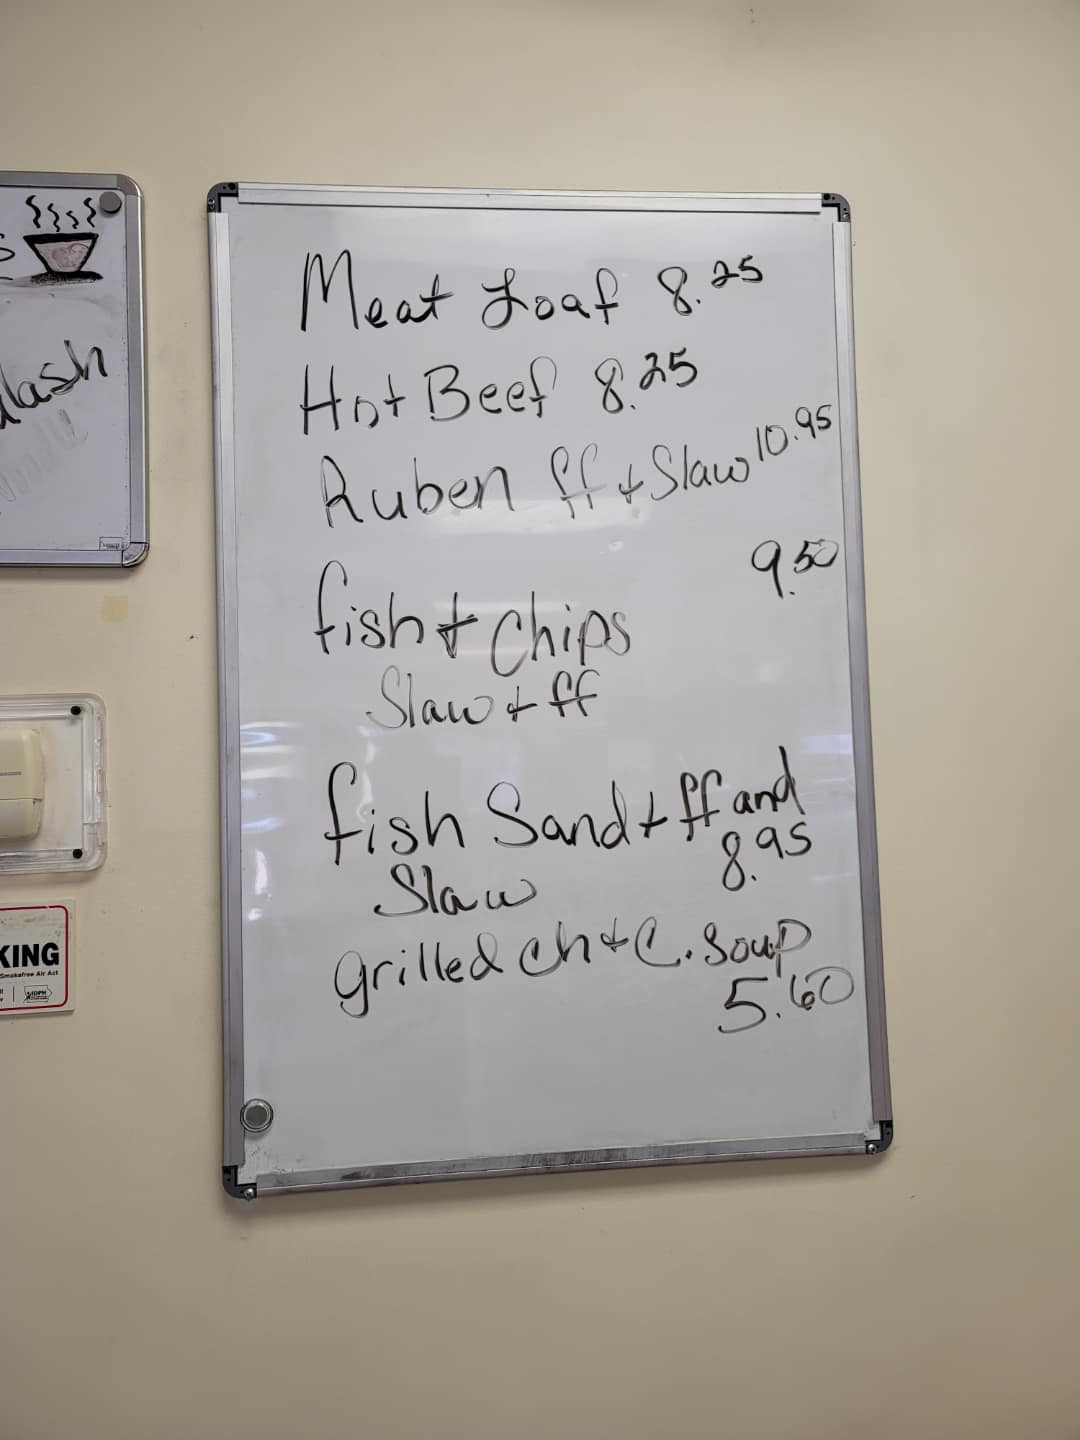 Meat Loaf 8.25
Hot Beef 8.25
Ruben ff + Slaw 10.95
fish + Chips 9.50
Slaw + ff
fish Sand + ff and
Slaw 8.95
grilled Ch + C. Soup
5.60
lash
KING
Smokefree Air Act